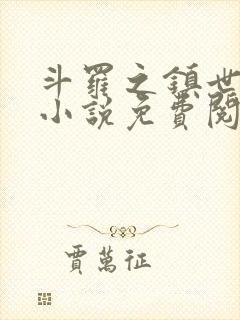 斗羅之鎮世
小說免費閱
賈萬征